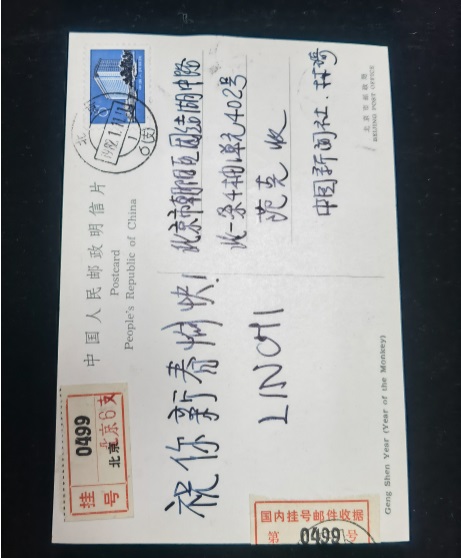 中国人民邮政明信片
Postcard
People's Republic of China
挂号
0499
北京6支
北京
祝你新春愉快!
LINQI
北京市朝阳区团结湖中路
北一条4楼1单元402号
收
中国新闻社.林琦
北京市邮政局
BEIJING POST OFFICE
Geng Shen Year (Year of the Monkey)
国内挂号邮件收据
第 0499 号